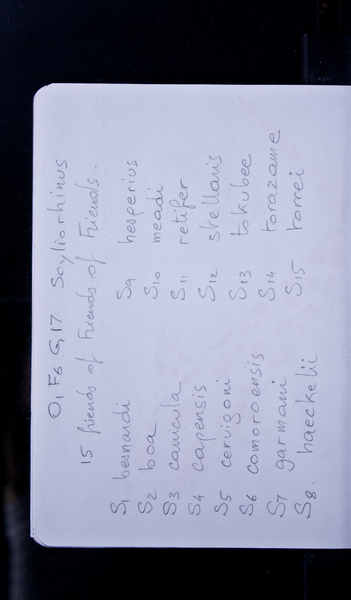 O1 F6 G17 Scyliorhinus
15 friends of Friends of Friends.
S1 besnardi
S2 boa
S3 canicula
S4 capensis
S5 cervigoni
S6 comoroensis
S7 garmani
S8. haeckelii
S9 hesperius
S10 meadi
S11 retifer
S12 stellaris
S13 tokubee
S14 torazame
S15 torrei